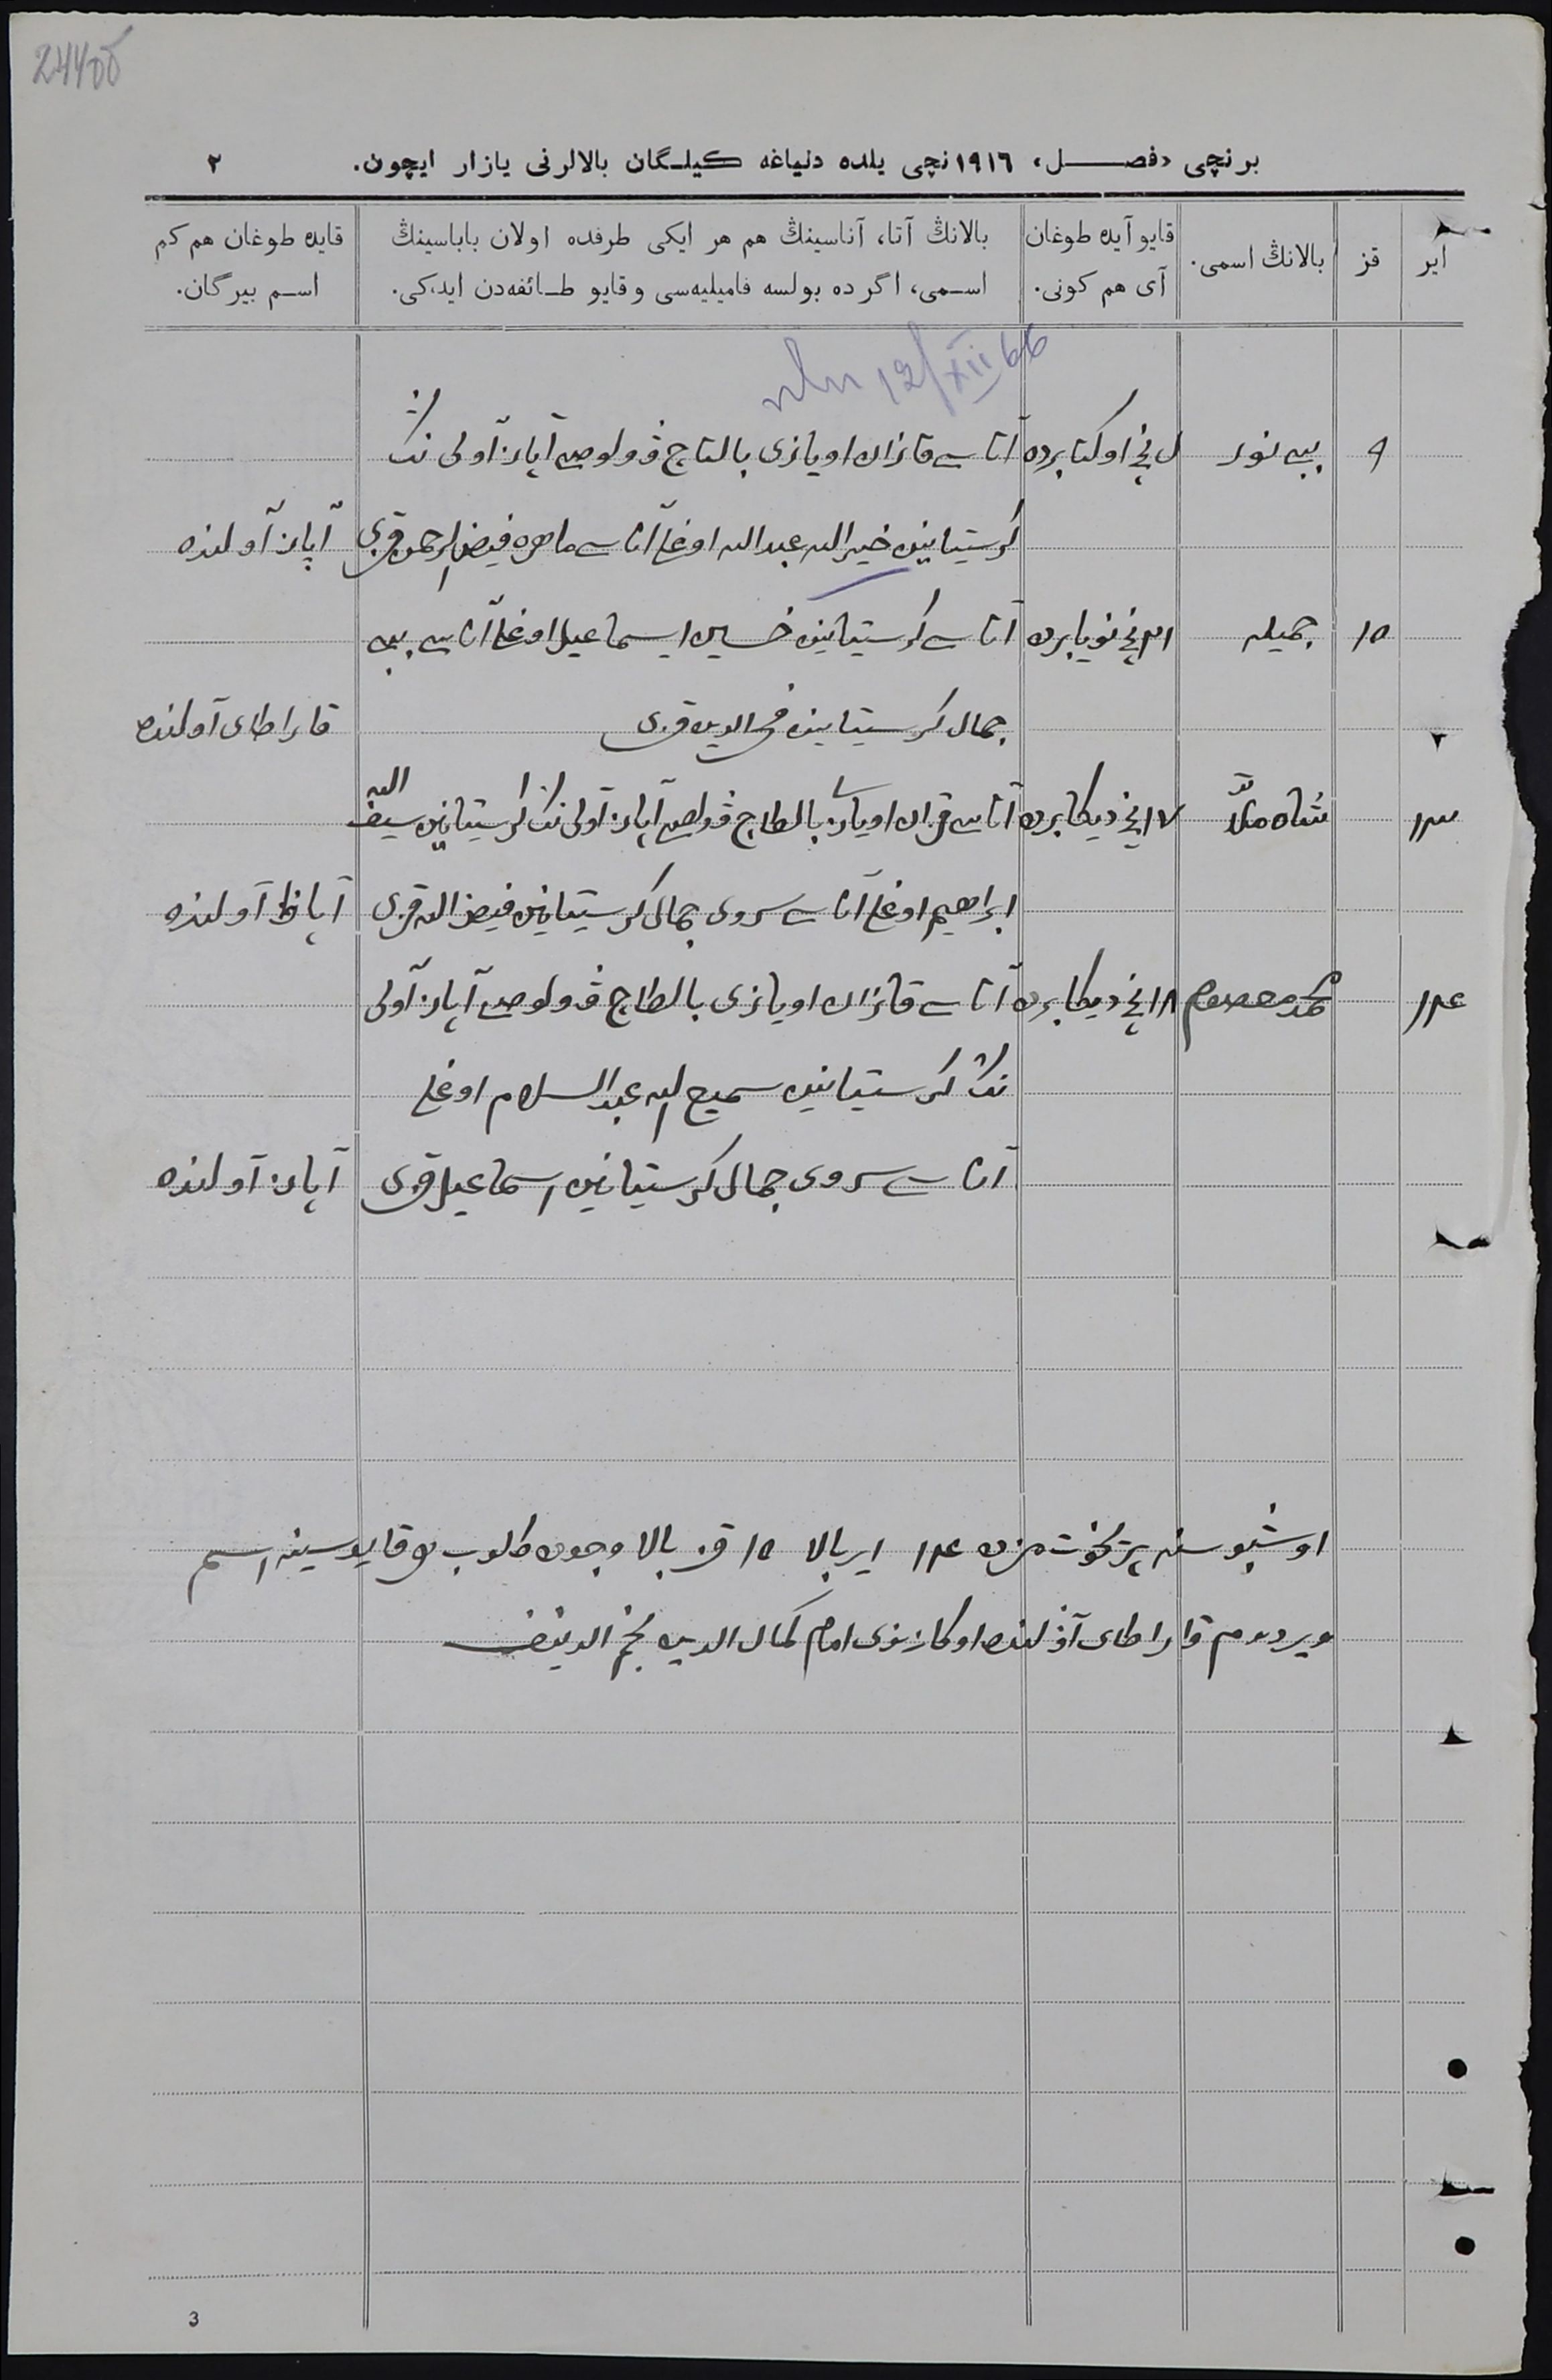 244об
برنچی «فصل» ١٩١٦نچی یلده دنیاغه کیلگان بالالرنی یازار ایچون. ٢
ایر
قز
بالانڭ اسمی.
قایو آیده طوغان آی هم کونی.
بالانڭ آتا، آناسینڭ هم هر ایکی طرفده اولان باباسینڭ
اسمی، اگرده بولسه فامیلیه‌سی و قایو طائفه‌دن ایدکی.
قایده طوغان هم کم اسم بیرگان.
12/XII 66
٩ بیبی نور نچی اوکتابرده آتاسی قازان اویازی بالتاج ڤولوصی آپاز آولی ننڭ
کرستیانین خیرالله عبدالله اوغلی آناسی ماهره فیض الرحمن قزی آپاز آولنده
١٥ جمیله نچی نویابرده آتاسی کرستیانین حسین اسماعیل اوغلی آناسی بیبی
جمال کرستیانین قزی قاراطای آولنده
١٣ شاه ملا ١٧نچی دیکابرده آتاسی قزان اویازی بالطاج ڤولوصی آپاز آولی ننڭ کرستیانین سیف الله
ابراهیم اوغلی آناسی سروی جمال کرستیانین فیض الله قزی آولنده
١٤ محمد معصوم ١٨نچی دیکابرده آتاسی قازان اویازی بالطاج ڤولوصی آپاز آولی
ننڭ کرستیانین سمیع الله عبدالسلام اوغلی
آناسی سروی جمال کرستیانین اسماعیل قزی آپاز آولنده
اوشبو سنه ١٤ ایر بالا ١٥ قز بالا وجوده کلوب هر قایوسینه اسم
ویردم قاراطای آولنده اوکازنوی امام کمال الدین نجم الدینف
3